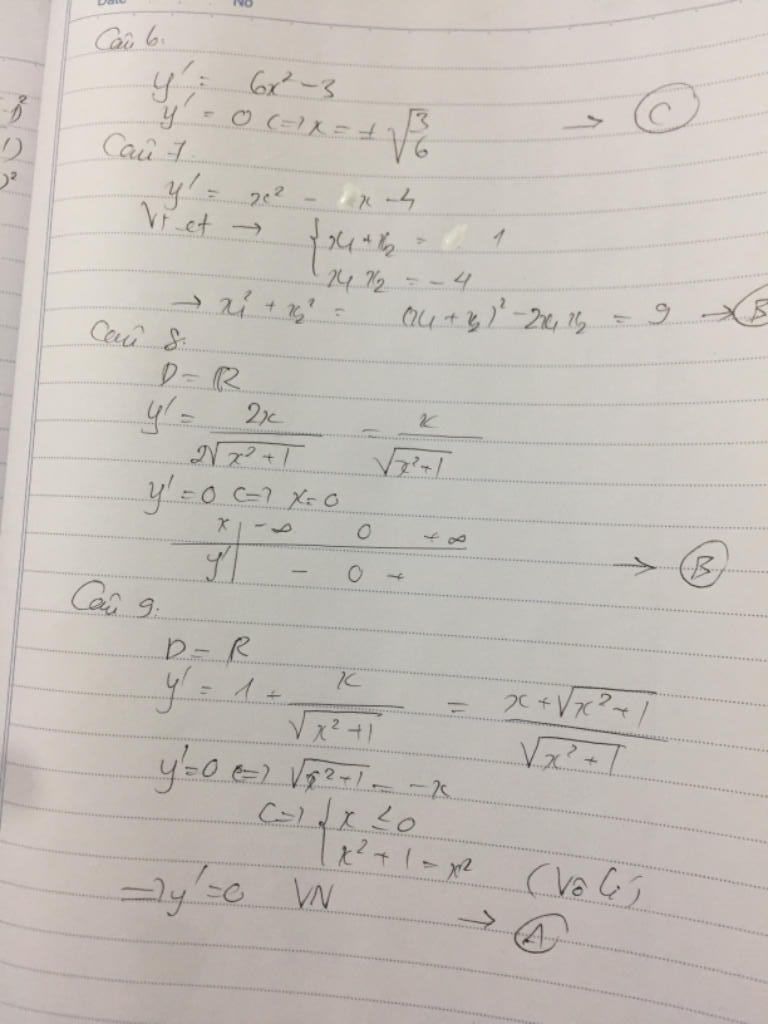 Date No
Câu 6.
y' = 6x² - 3
y' = 0 <=> x = ±√(3/6) → C
Câu 7.
y' = x² - x - 4
Vi-et → { x₁ + x₂ = 1
x₁x₂ = -4
→ x₁² + x₂² = (x₁ + x₂)² - 2x₁x₂ = 9 → B
Câu 8.
D = ℝ
y' = 2x/(2√(x²+1)) = x/√(x²+1)
y' = 0 <=> x = 0
x | -∞ 0 +∞
y' | - 0 + → B
Câu 9.
D = R
y' = 1 + x/√(x²+1) = (x + √(x²+1))/√(x²+1)
y' = 0 <=> √(x²+1) = -x
<=> { x ≤ 0
x² + 1 = x² (Vô lí)
=> y' = 0 VN → A